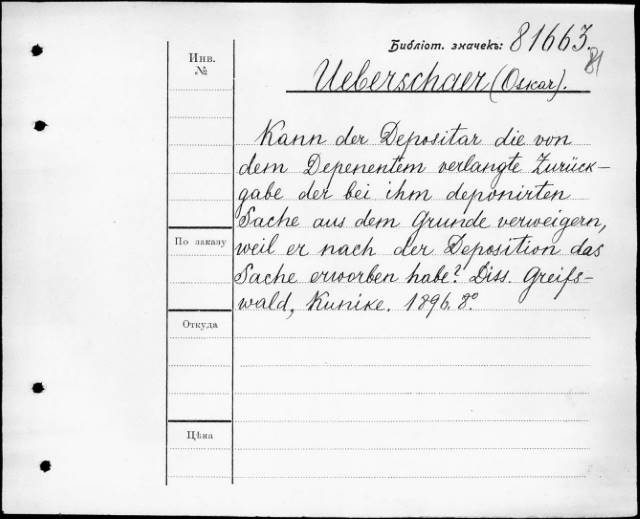 Библіот. значекъ: 81663.
81
Инв. №
Ueberschaer (Oskar).
Kann der Depositar die von
dem Depenentem verlangte Zurück-
gabe der bei ihm deponirten
Sache aus dem Grunde verweigern,
По заказу
weil er nach der Deposition das
Sache erworben habe? Diss. Greifs-
wald, Kunike. 1896. 8º
Откуда
Цѣна